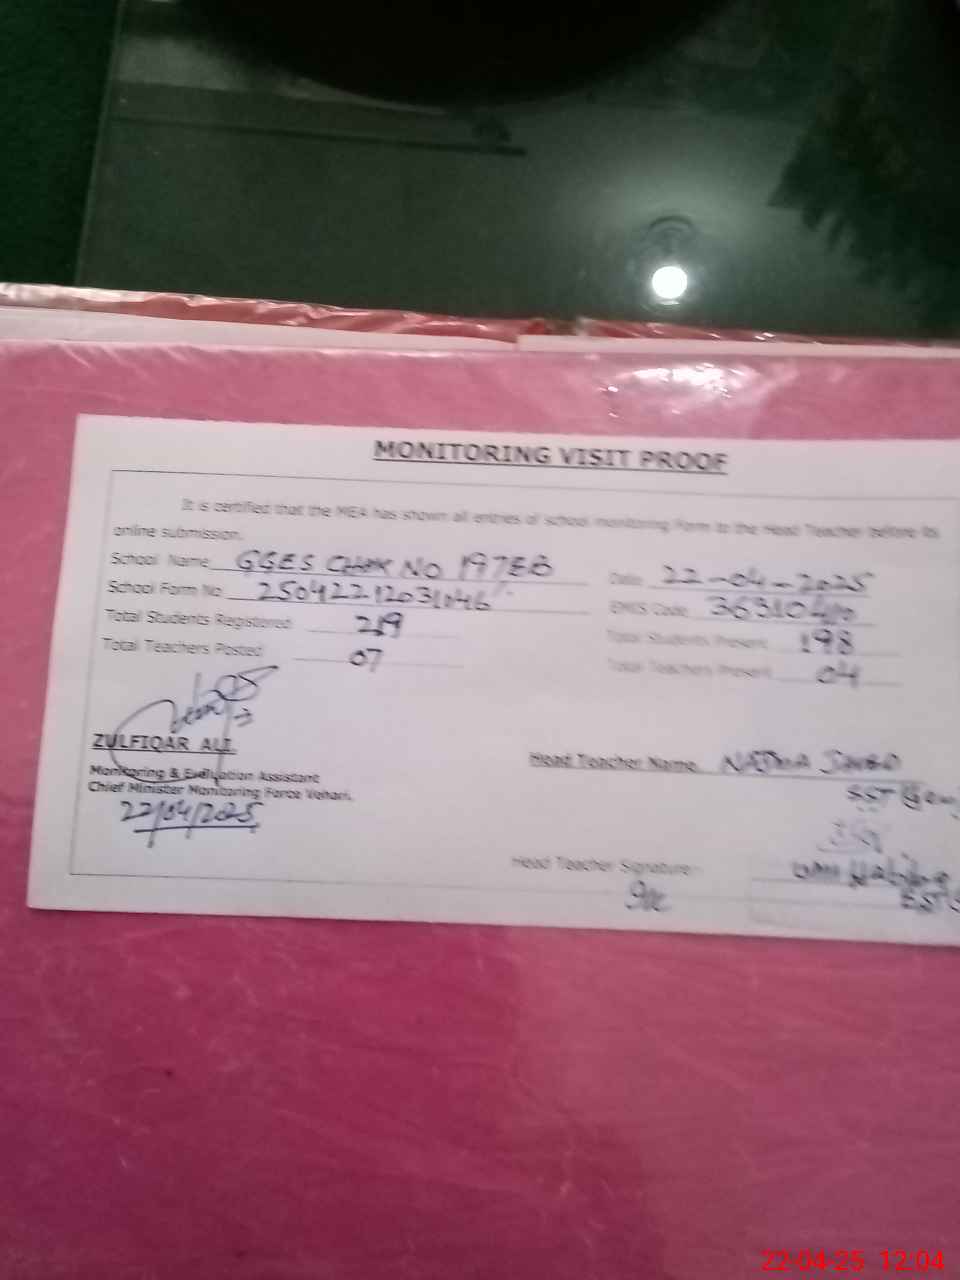 MONITORING VISIT PROOF
It is certified that the MEA has shown all entries of school monitoring Form to the Head Teacher before its
online submission.
School Name GGES CHAK NO 197EB Date 22-04-2025
School Form No. 25042212031046 EMIS Code 36310410
Total Students Registered 219 Total Students Present 198
Total Teachers Posted 07 Total Teachers Present 04
ZULFIQAR ALI
Monitoring & Evaluation Assistant
Chief Minister Monitoring Force Vehari.
22/04/2025
Head Teacher Name NAJMA
SST
Head Teacher Signature:
EST
22-04-25 12:04